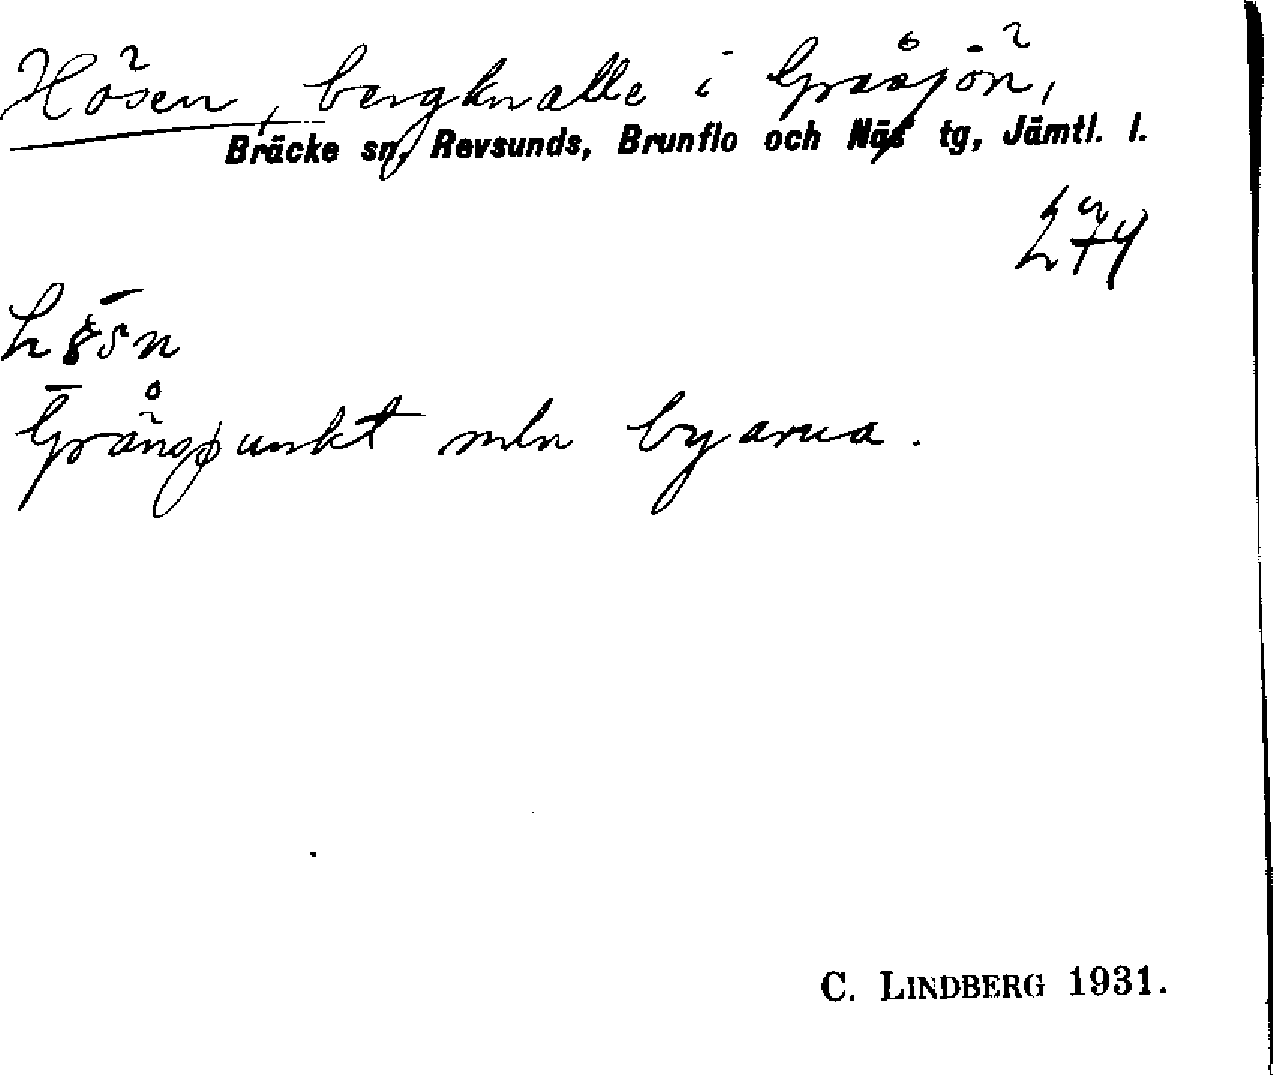 Hösen, bergknalle i Gråsjön,
Bräcke sn, Revsunds, Brunflo och Näs tg, Jämtl. l.
274
Gränspunkt mln byarna.
C. LINDBERG 1931.